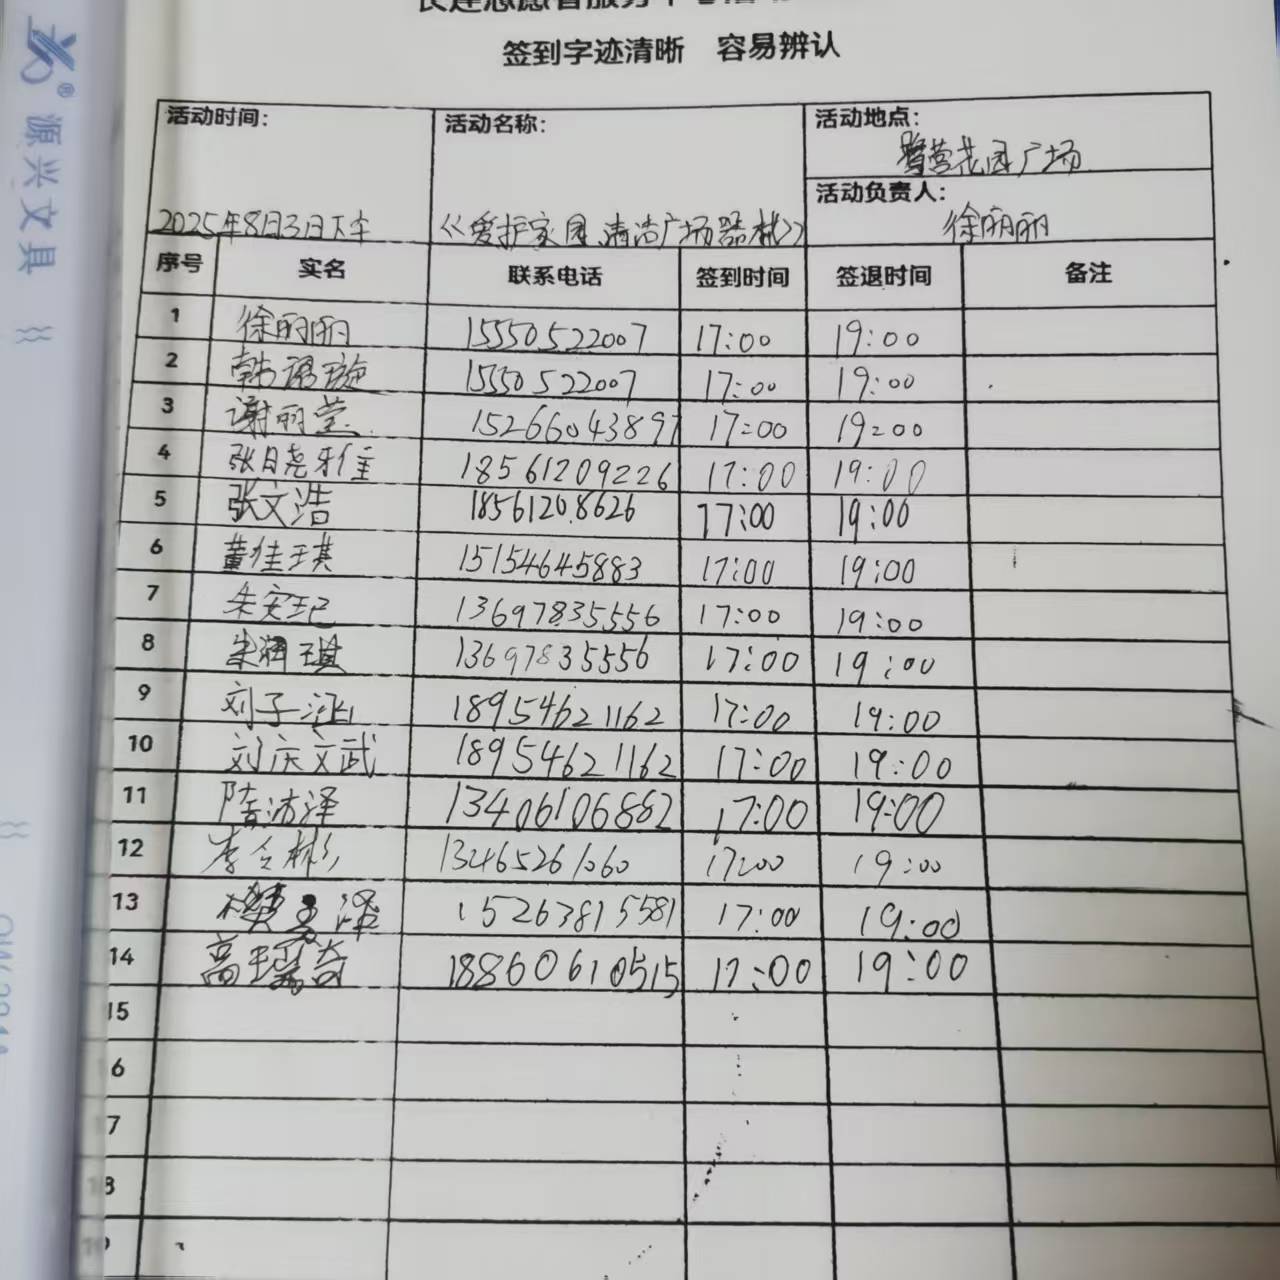 签到字迹清晰 容易辨认
活动时间： 活动名称： 活动地点：
花园广场
活动负责人：
2025年8月3日下午 《爱护家园、清洁广场器械》 徐丽丽
序号 实名 联系电话 签到时间 签退时间 备注
1 徐丽丽 15550522007 17:00 19:00
2 韩璇 15550522007 17:00 19:00
3 谢丽莹 15266043897 17:00 19:00
4 张 18561209226 17:00 19:00
5 张文浩 18561208626 17:00 19:00
6 董佳琪 15154645883 17:00 19:00
7 朱安 13697835556 17:00 19:00
8 朱润琪 13697835556 17:00 19:00
9 刘子涵 18954621162 17:00 19:00
10 刘庆武 18954621162 17:00 19:00
11 泽 13406106882 17:00 19:00
12 李彬 13465261060 17:00 19:00
13 泽 15263815581 17:00 19:00
14 高 18860610515 17:00 19:00
15
6
7
8
源兴文具